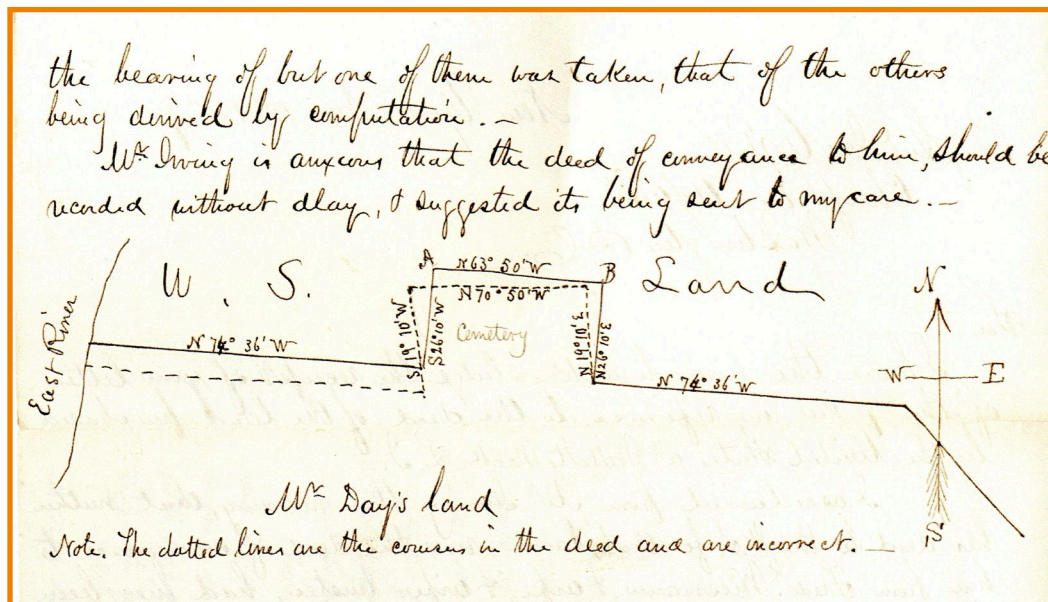 the bearing of but one of them was taken, that of the others
being derived by computation. —
Mr Irving is anxious that the deed of conveyance to him, should be
recorded without dlay, & suggested its being sent to my care. —
U. S. Land
A
N 63° 50' W
B
N 70° 50' W
S 19° 10' W
S 26° 10' W
Cemetery
N 19° 10' E
N 26° 10' E
N 74° 36' W
East River
N 74° 36' W
N
W
E
S
Mr Day's land
Note. The dotted lines are the courses in the deed and are incorrect. —